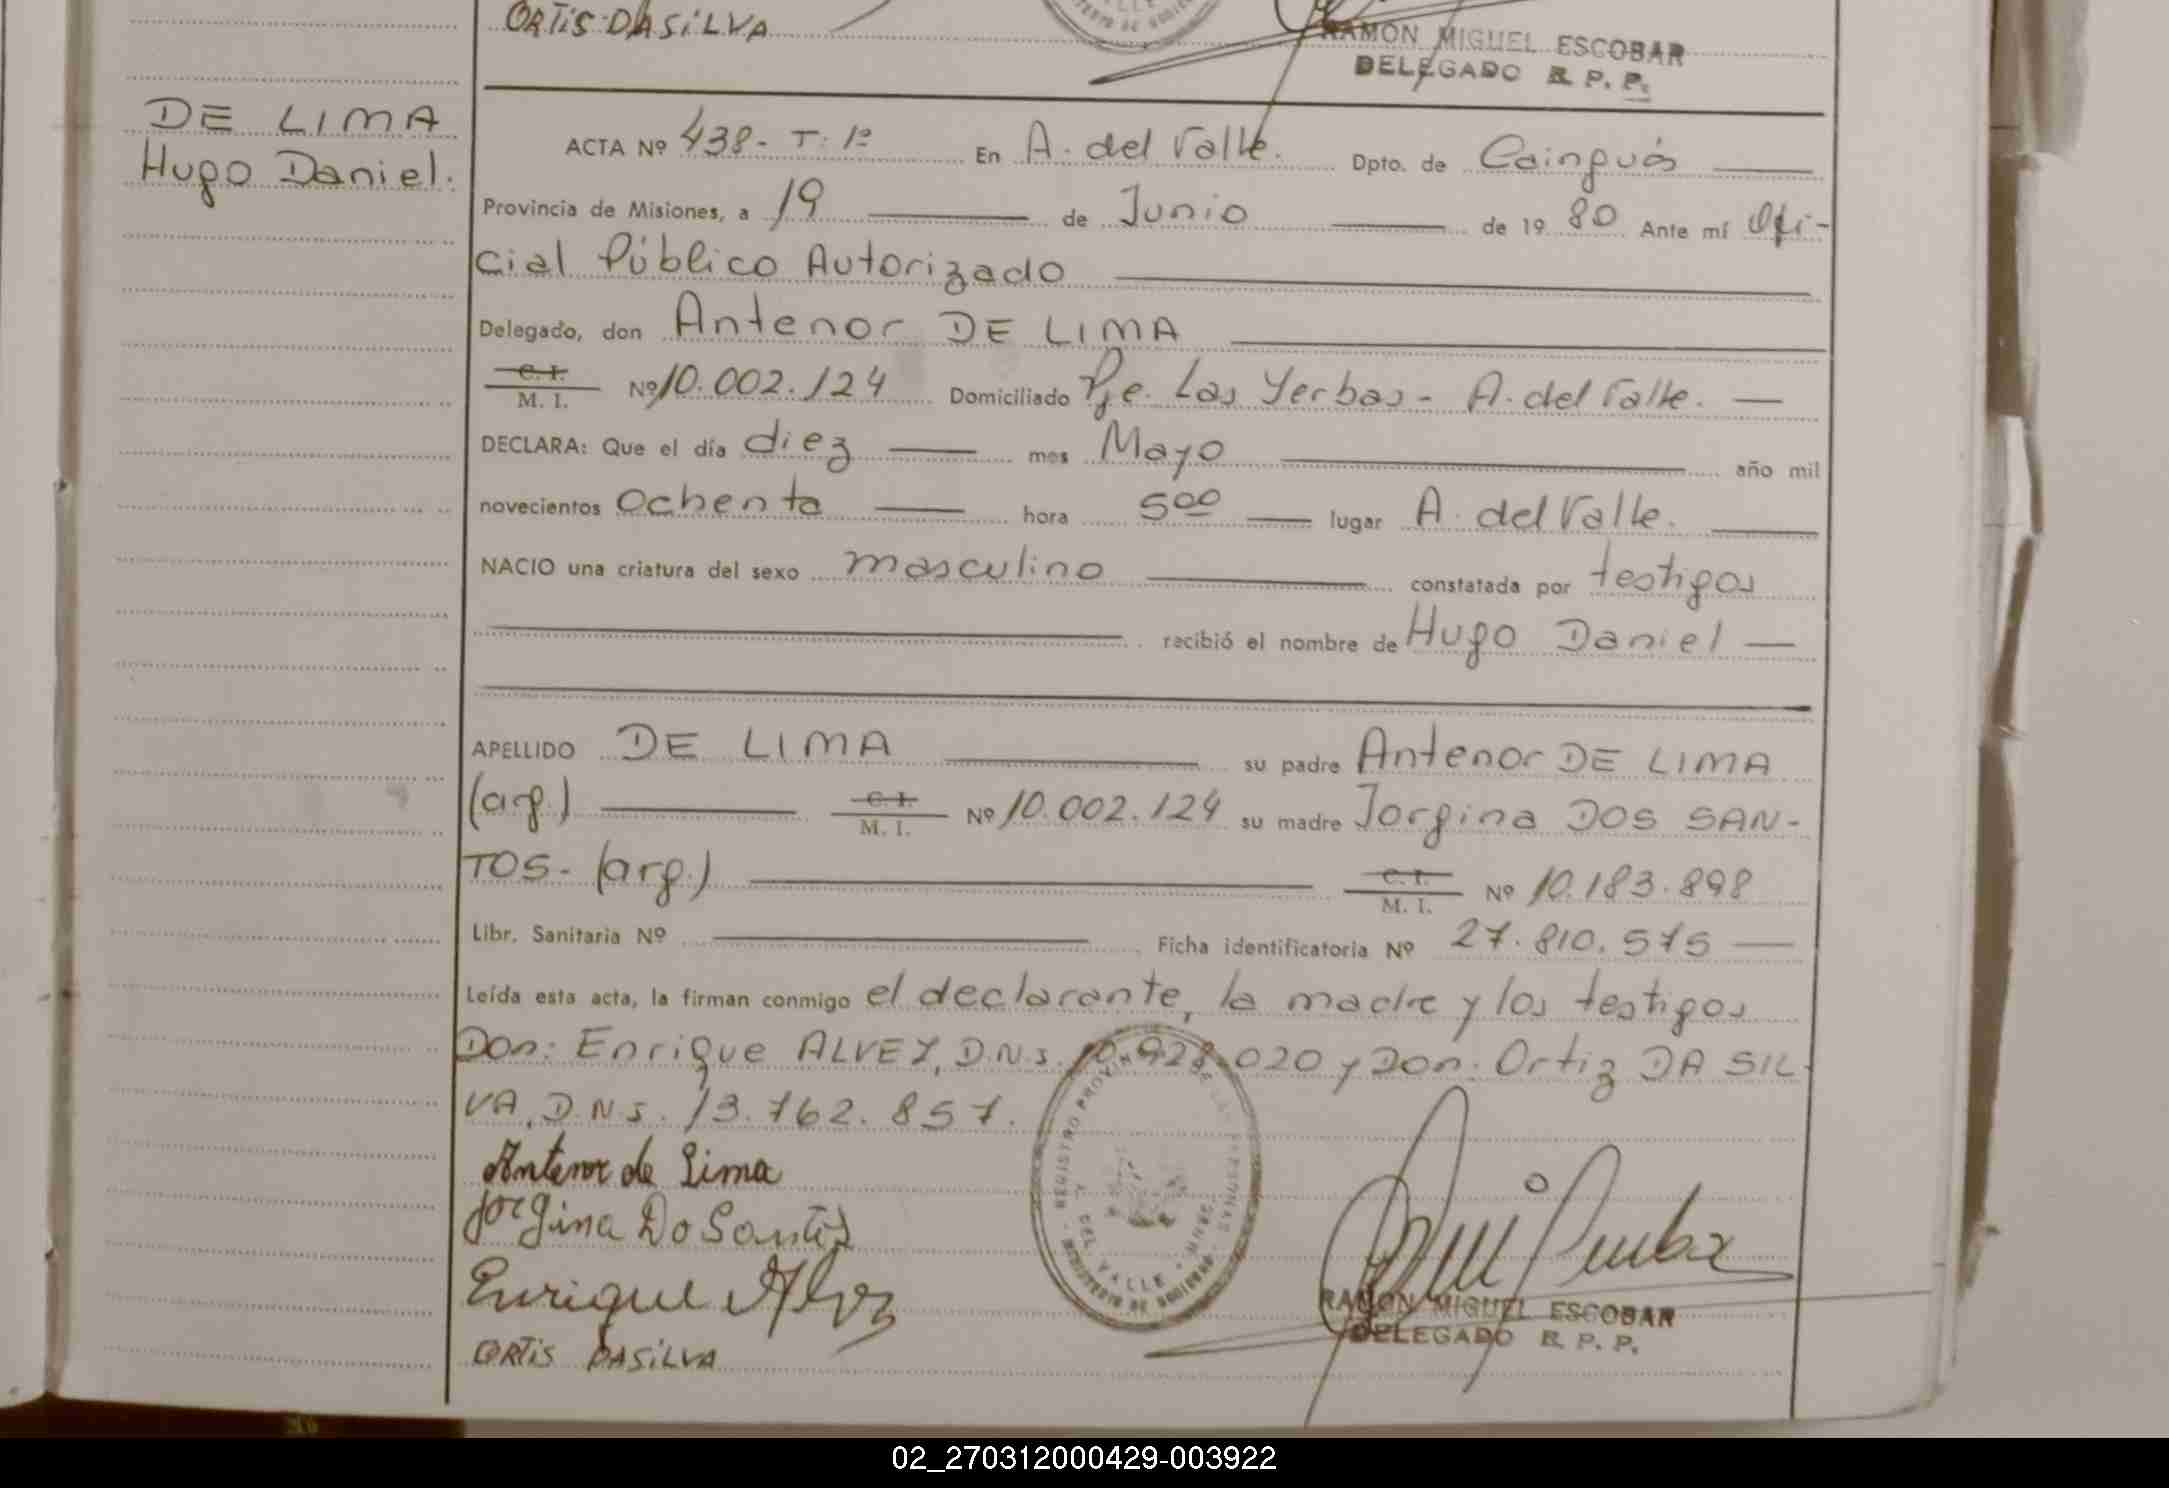 ORTIS DASILVA
RAMON MIGUEL ESCOBAR
DELEGADO R. P. P.
DE LIMA
Hugo Daniel.
ACTA Nº 438- T: 1º En A. del Valle. Dpto. de Cainguás
Provincia de Misiones, a 19 de Junio de 19 80 Ante mí Ofi-
cial Público Autorizado
Delegado, don Antenor DE LIMA
C. I.
M. I. Nº 10.002.124 Domiciliado Pje. Las Yerbas - A. del Valle. —
DECLARA: Que el día diez mes Mayo año mil
novecientos Ochenta hora 5 00 lugar A. del Valle.
NACIO una criatura del sexo masculino constatada por testigos
recibió el nombre de Hugo Daniel —
APELLIDO DE LIMA su padre Antenor DE LIMA
(arg.) C. I. M. I. Nº 10.002.124 su madre Jorgina DOS SAN-
TOS- (arg.) C. I. M. I. Nº 10.183.898
Libr. Sanitaria Nº Ficha identificatoria Nº 27.810.575 —
Leída esta acta, la firman conmigo el declarante, la madre y los testigos
Don: Enrique ALVEZ, D.N.I. 10.928.020 y Don: Ortiz DA SIL-
VA, D.N.I. 13.762.857.
Antenor de Lima
Jorgina Do Santos
Enrique Alvez
ORTIS DASILVA
REGISTRO PROVINCIAL DE LAS PERSONAS
DEL VALLE - MNES.
MINISTERIO DE GOBIERNO
RAMON MIGUEL ESCOBAR
DELEGADO R. P. P.
02_270312000429-003922